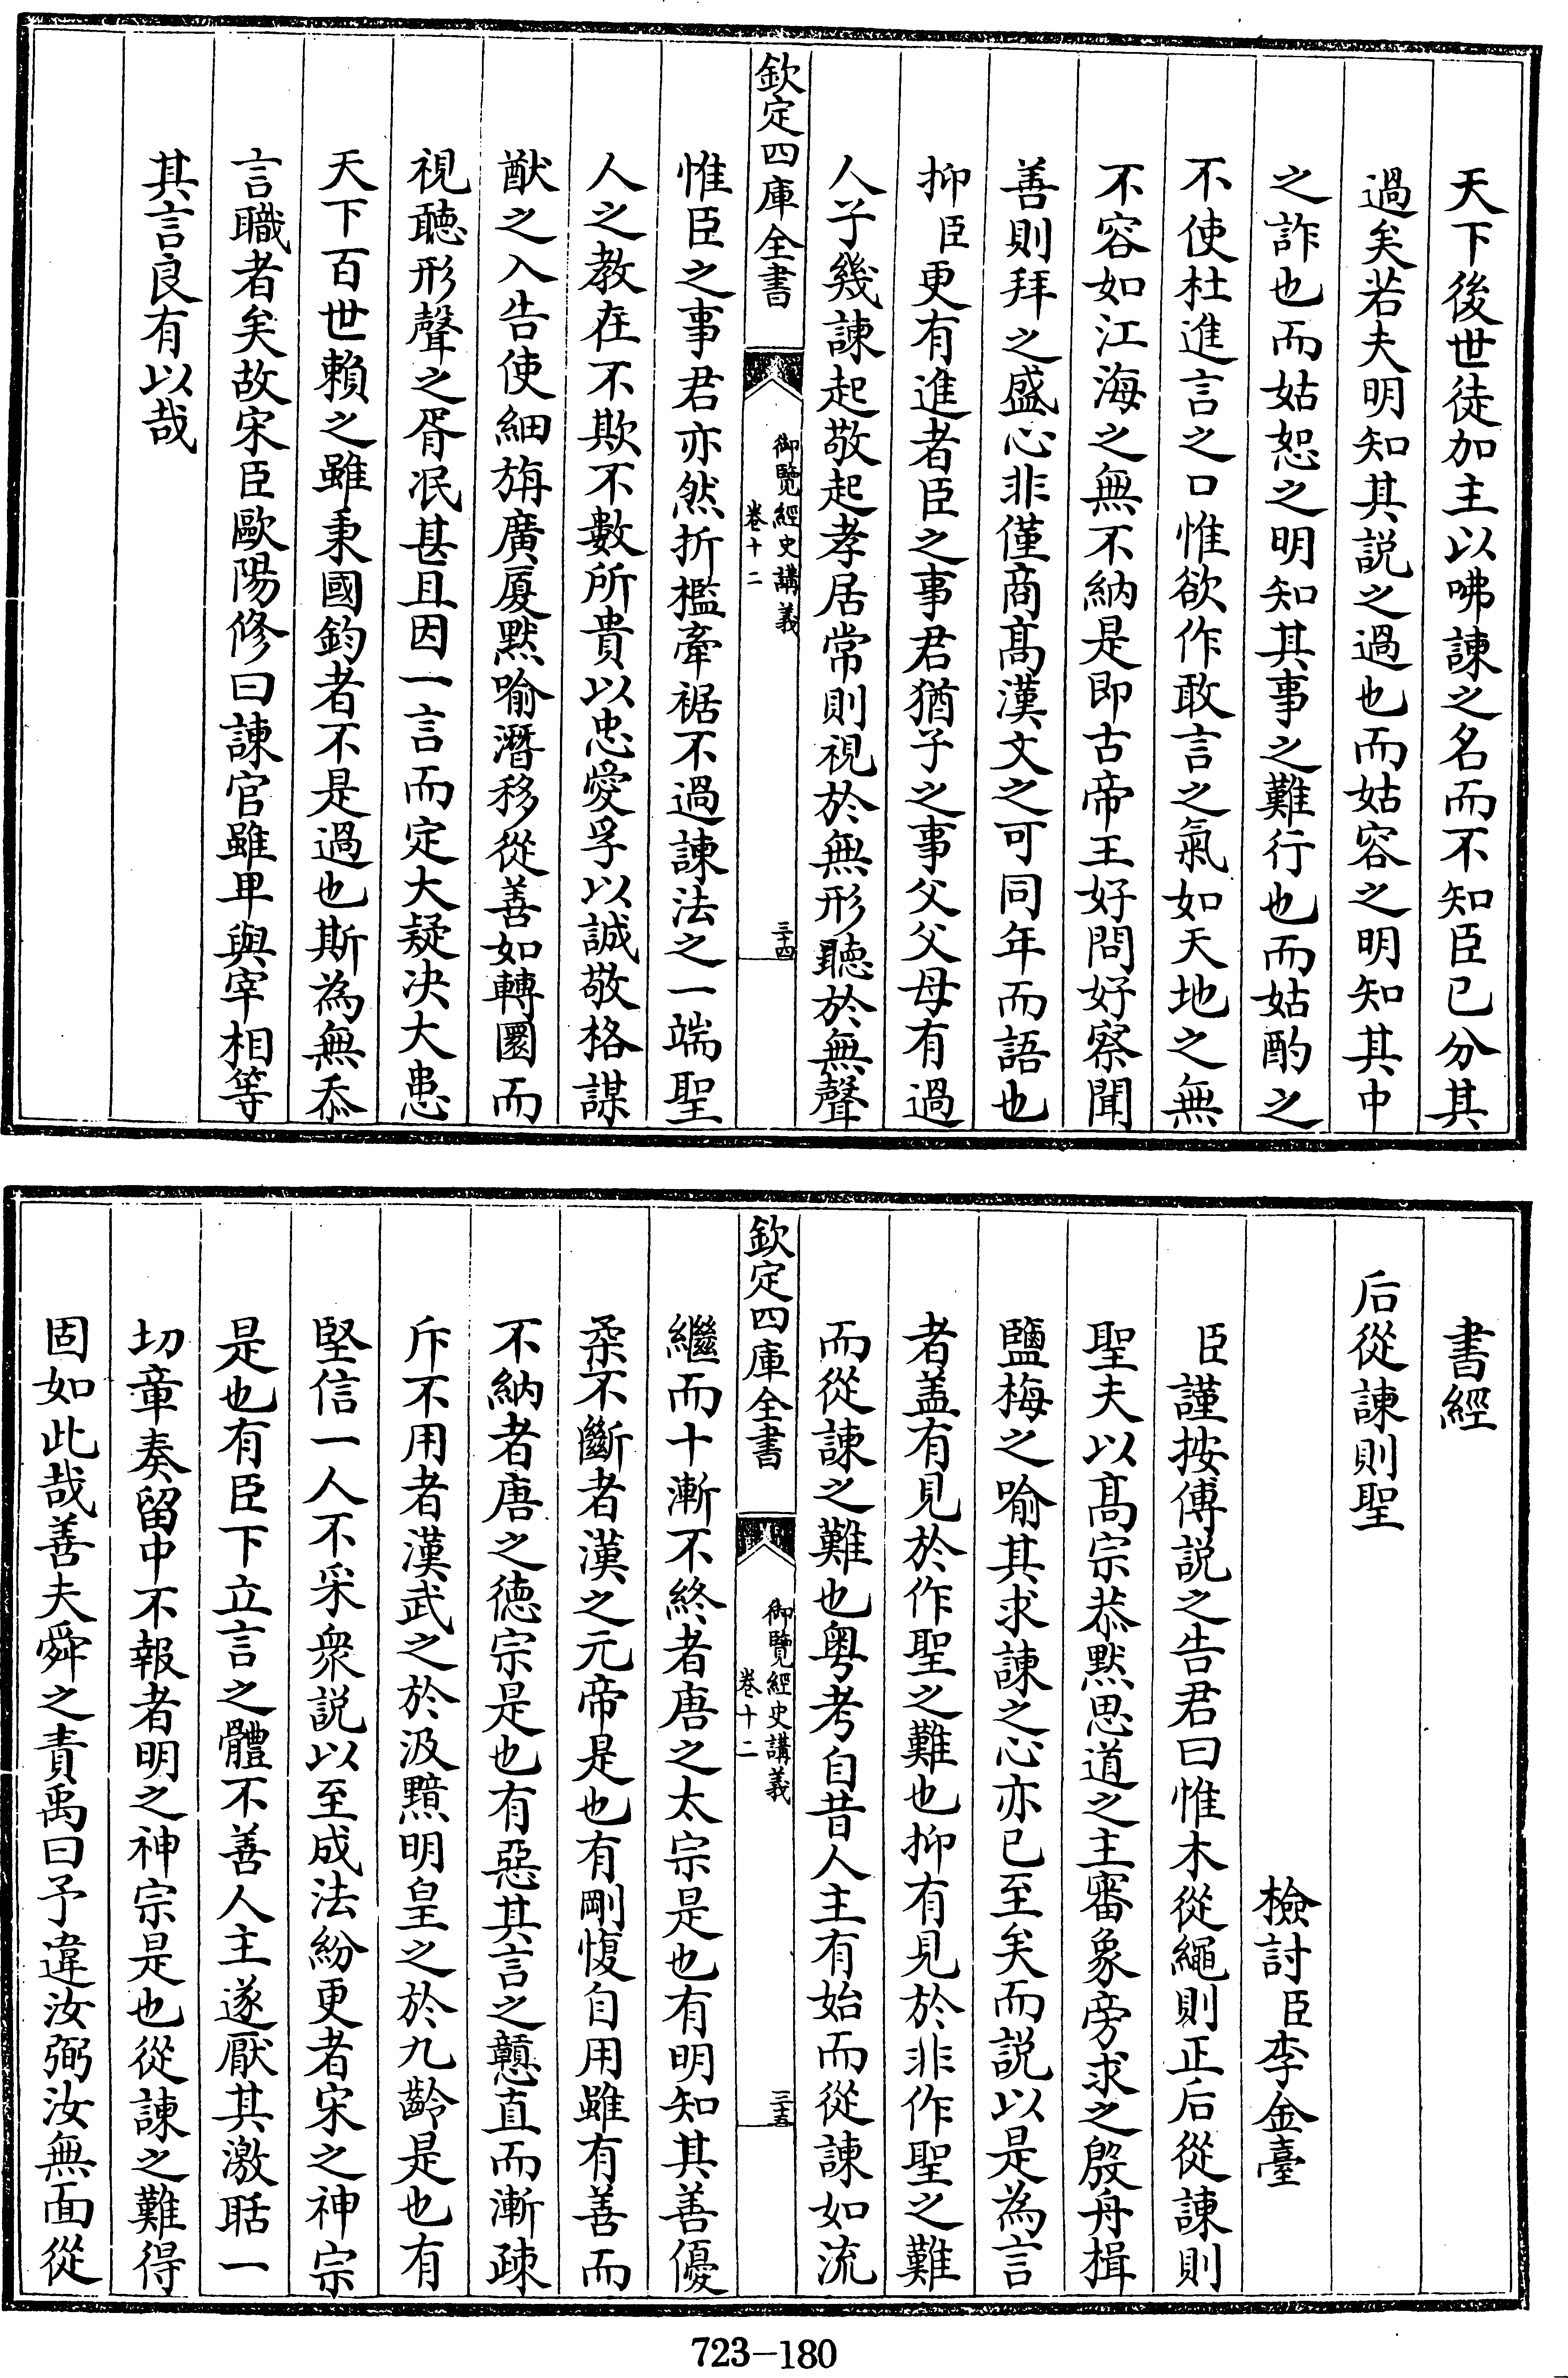 天下後世徒加主以咈諫之名而不知臣已分其
過矣若夫明知其説之過也而姑容之明知其中
之詐也而姑恕之明知其事之難行也而姑酌之
不使杜進言之口惟欲作敢言之氣如天地之無
不容如江海之無不納是即古帝王好問好察聞
善則拜之盛心非僅商髙漢文之可同年而語也
抑臣更有進者臣之事君猶子之事父父母有過
人子幾諫起敬起孝居常則視於無形聽於無聲
欽定四庫全書
御覽經史講義
卷十二
三十四
惟臣之事君亦然折檻牽裾不過諫法之一端聖
人之教在不欺不數所貴以忠愛孚以誠敬格謀
猷之入告使細旃廣厦黙喻潛移從善如轉圜而
視聽形聲之胥泯甚且因一言而定大疑决大患
天下百世賴之雖秉國鈞者不是過也斯為無忝
言職者矣故宋臣歐陽修曰諫官雖卑與宰相等
其言良有以哉
書經
后從諫則聖
檢討臣李金臺
臣謹按傅説之告君曰惟木從繩則正后從諫則
聖夫以髙宗恭黙思道之主審象旁求之殷舟楫
鹽梅之喻其求諫之心亦已至矣而説以是為言
者盖有見於作聖之難也抑有見於非作聖之難
而從諫之難也粤考自昔人主有始而從諫如流
欽定四庫全書
御覽經史講義
卷十二
三十五
繼而十漸不終者唐之太宗是也有明知其善優
柔不斷者漢之元帝是也有剛愎自用雖有善而
不納者唐之德宗是也有惡其言之戇直而漸疎
斥不用者漢武之於汲黯明皇之於九齡是也有
堅信一人不采衆説以至成法紛更者宋之神宗
是也有臣下立言之體不善人主遂厭其激聒一
切章奏留中不報者明之神宗是也從諫之難得
固如此哉善夫舜之責禹曰予違汝弼汝無面從
723-180